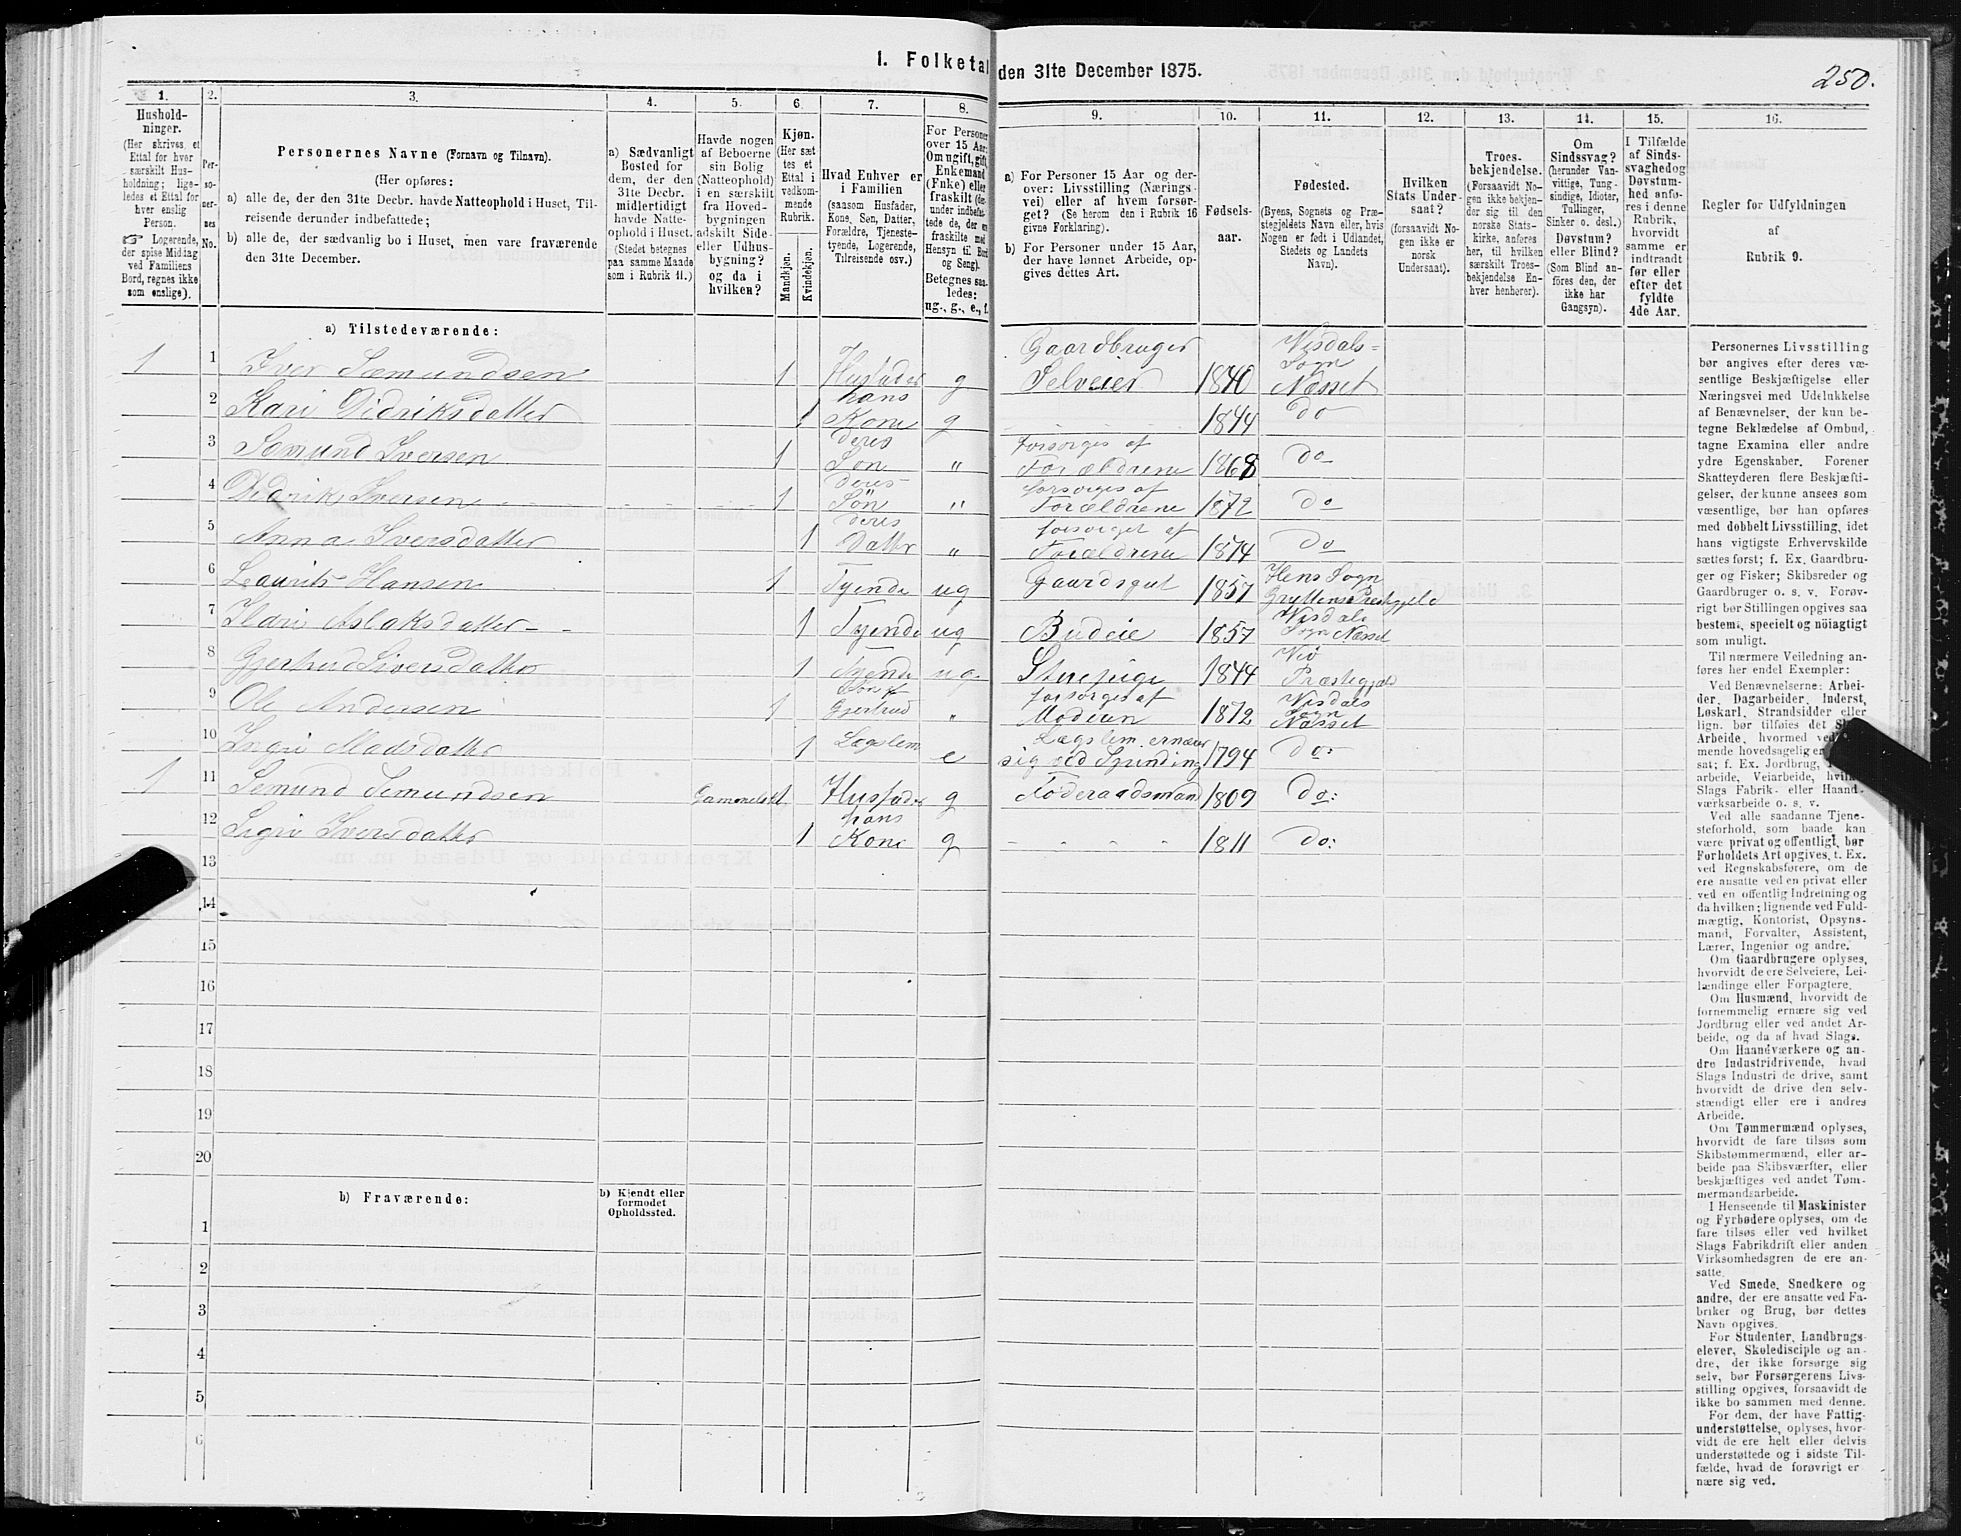 1. Folketal den 31te December 1875.
250.
1.
Hushold-
ninger.
(Her skrives et
Ettal for hver
særskilt Hus-
holdning; lige-
ledes et Ettal for
hver enslig
Person.
Logerende,
der spise Middag
ved Familiens
Bord, regnes ikke
som enslige).
2.
Per-
so-
ner-
nes
No.
3.
Personernes Navne (Fornavn og Tilnavn).
(Her opføres:
a) alle de, der den 31te Decbr. havde Natteophold i Huset, Til-
reisende derunder indbefattede;
b) alle de, der sædvanlig bo i Huset, men vare fraværende
den 31te December.
4.
a) Sædvanligt
Bosted for
dem, der den
31te Decbr.
midlertidigt
havde Natte-
ophold i Huset.
(Stedet betegnes
paa samme Maade
som i Rubrik 11.)
5.
Havde nogen
af Beboerne
sin Bolig
(Natteophold)
i en særskilt
fra Hoved-
bygningen
adskilt Side-
eller Udhus-
bygning?
og da i
hvilken?
6.
Kjøn.
(Her sæt
tes et
Ettal i
vedkom-
mende
Rubrik.
Mandkjøn.
Kvindekjøn.
7.
Hvad Enhver er
i Familien
(saasom Husfader,
Kone, Søn, Datter,
Forældre, Tjeneste-
tyende, Logerende,
Tilreisende osv.)
8.
For Personer
over 15 Aar:
Om ugift, gift,
Enkemand
(Enke) eller
fraskilt (der-
under indbefat-
tede de, der er
fraskilte med
Hensyn til Bord
og Seng).
Betegnes saa-
ledes:
ug., g., e., f.
9.
a) For Personer 15 Aar og der-
over: Livsstilling (Nærings-
vei) eller af hvem forsør-
get? (Se herom den i Rubrik 16
givne Forklaring).
b) For Personer under 15 Aar,
der have lønnet Arbeide, op-
gives dettes Art.
10.
Fødsels-
aar.
11.
Fødested.
(Byens, Sognets og Præ-
stegjeldets Navn eller, hvis
Nogen er født i Udlandet,
Stedets og Landets
Navn).
12.
Hvilken
Stats Under-
saat?
(forsaavidt No-
gen ikke er
norsk
Undersaat).
13.
Troes-
bekjendelse.
(Forsaavidt No-
gen ikke bekjen-
der sig til den
norske Stats-
kirke, anføres
her, til hvilken
særskilt Troes-
bekjendelse En-
hver henhører).
14.
Om
Sindssvag?
(herunder Van-
vittige, Tung-
sindige, Idioter,
Tullinger,
Sinker o. desl.)
Døvstum?
eller Blind?
(Som Blind an-
føres den, der
ikke har
Gangsyn).
15.
I Tilfælde
af Sinds-
svaghed og
Døvstum-
hed anfø-
res i denne
Rubrik,
hvorvidt
samme er
indtraadt
før eller
efter det
fyldte
4de Aar.
16.
Regler for Udfyldningen
af
Rubrik 9.
a) Tilstedeværende:
1 1 Iver Sæmundsen 1 Husfader g Gaardbruger Selveier 1840 Visdals= Sogn Næsset
2 Kari Didriksdatter 1 hans Kone g 1844 do
3 Sæmund Iversen 1 deres Søn " Forsørges af Forældrene 1868 do
4 Didrik Iversen 1 deres Søn " forsørges af Forældrene 1872 do
5 Anna Iversdatter 1 deres Datter " forsørget af Forældrene 1874 do
6 Laurits Hansen 1 Tyende ug Gaardsgut 1857 Hens Sogn Gryttens Prestgjeld
7 Mari Aslaksdatter 1 Tyende ug Budeie 1857 Visdals Sogn Næsset
8 Gjertrud Siversdatter 1 Tyende ug Stuepige 1844 Veø Præstegjeld
9 Ole Andersen 1 Søn af Gjertrud " forsørges af Moderen 1872 Visdals Sogn Næsset
10 Ingri Madsdatter 1 Lægslem e Lægslem ernærer sig ved Spinding 1794 do
1 11 Semund Semundsen 1 Husfader g Føderaadsmand 1809 do:
12 Sigri Iversdatter 1 hans Kone g 1811 do:
13
14
15
16
17
18
19
20
b) Fraværende:
b) Kjendt eller
formodet
Opholdssted.
1
2
3
4
5
6
Personernes Livsstilling
bør angives efter deres væ-
sentlige Beskjæftigelse eller
Næringsvei med Udelukkelse
af Benævnelser, der kun be-
tegne Beklædelse af Ombud,
tagne Examina eller andre
ydre Egenskaber. Forener
Skatteyderen flere Beskjæfti-
gelser, der kunne ansees som
væsentlige, bør han opføres
med dobbelt Livsstilling, idet
hans vigtigste Erhvervskilde
sættes først; f. Ex. Gaardbru-
ger og Fisker; Skibsreder og
Gaardbruger o. s. v. Forøv-
rigt bør Stillingen opgives saa
bestemt, specielt og nøiagtigt
som muligt.
Til nærmere Veiledning an-
føres her endel Exempler:
Ved Benævnelserne: Arbei-
der, Dagarbeider, Inderst,
Løskarl, Strandsidder eller
lign. bør tilføies det
Arbeide, hvormed ved
mende hovedsagelig er
sat; f. Ex. Jordbrug,
arbeide, Veiarbeide,
Slags Fabrik- eller Haand-
værksarbeide o. s. v.
Ved alle saadanne Tjene-
steforhold, som baade kan
være privat og offentligt, bør
Forholdets Art opgives, t. Ex.
ved Regnskabsførere, om de
ere ansatte ved en privat eller
ved en offentlig Indretning og
da hvilken; lignende ved Fuld-
mægtig, Kontorist, Opsyns-
mand, Forvalter, Assistent,
Lærer, Ingeniør og andre.
Om Gaardbrugere oplyses,
hvorvidt de ere Selveiere, Lei-
lændinge eller Forpagtere.
Om Husmænd, hvorvidt de
fornemmelig ernære sig ved
Jordbrug eller ved andet Ar-
beide, og da af hvad Slags.
Om Haandværkere og an-
dre Industridrivende, hvad
Slags Industri de drive, samt
hvorvidt de drive den selv-
stændigt eller ere i andres
Arbeide.
Om Tømmermænd oplyses,
hvorvidt de fare tilsøs som
Skibstømmermænd, eller ar-
beide paa Skibsværfter, eller
beskjæftiges ved andet Tøm-
mermandsarbeide.
I Henseende til Maskinister
og Fyrbødere oplyses, om de
fare tilsøs eller ved hvilket
Slags Fabrikdrift eller anden
Virksomhedsgren de ere an-
satte.
Ved Smede, Snedkere og
andre, der ere ansatte ved Fa-
briker og Brug, bør dettes
Navn opgives.
For Studenter, Landbrugs-
elever, Skoledisciple og an-
dre, der ikke forsørge sig
selv, bør Forsørgerens Livs-
stilling opgives, forsaavidt de
ikke bo sammen med denne.
For dem, der have Fattig-
understøttelse, oplyses, hvor-
vidt de ere helt eller delvis
understøttede og i sidste Til-
fælde, hvad de forøvrigt er
nære sig ved.